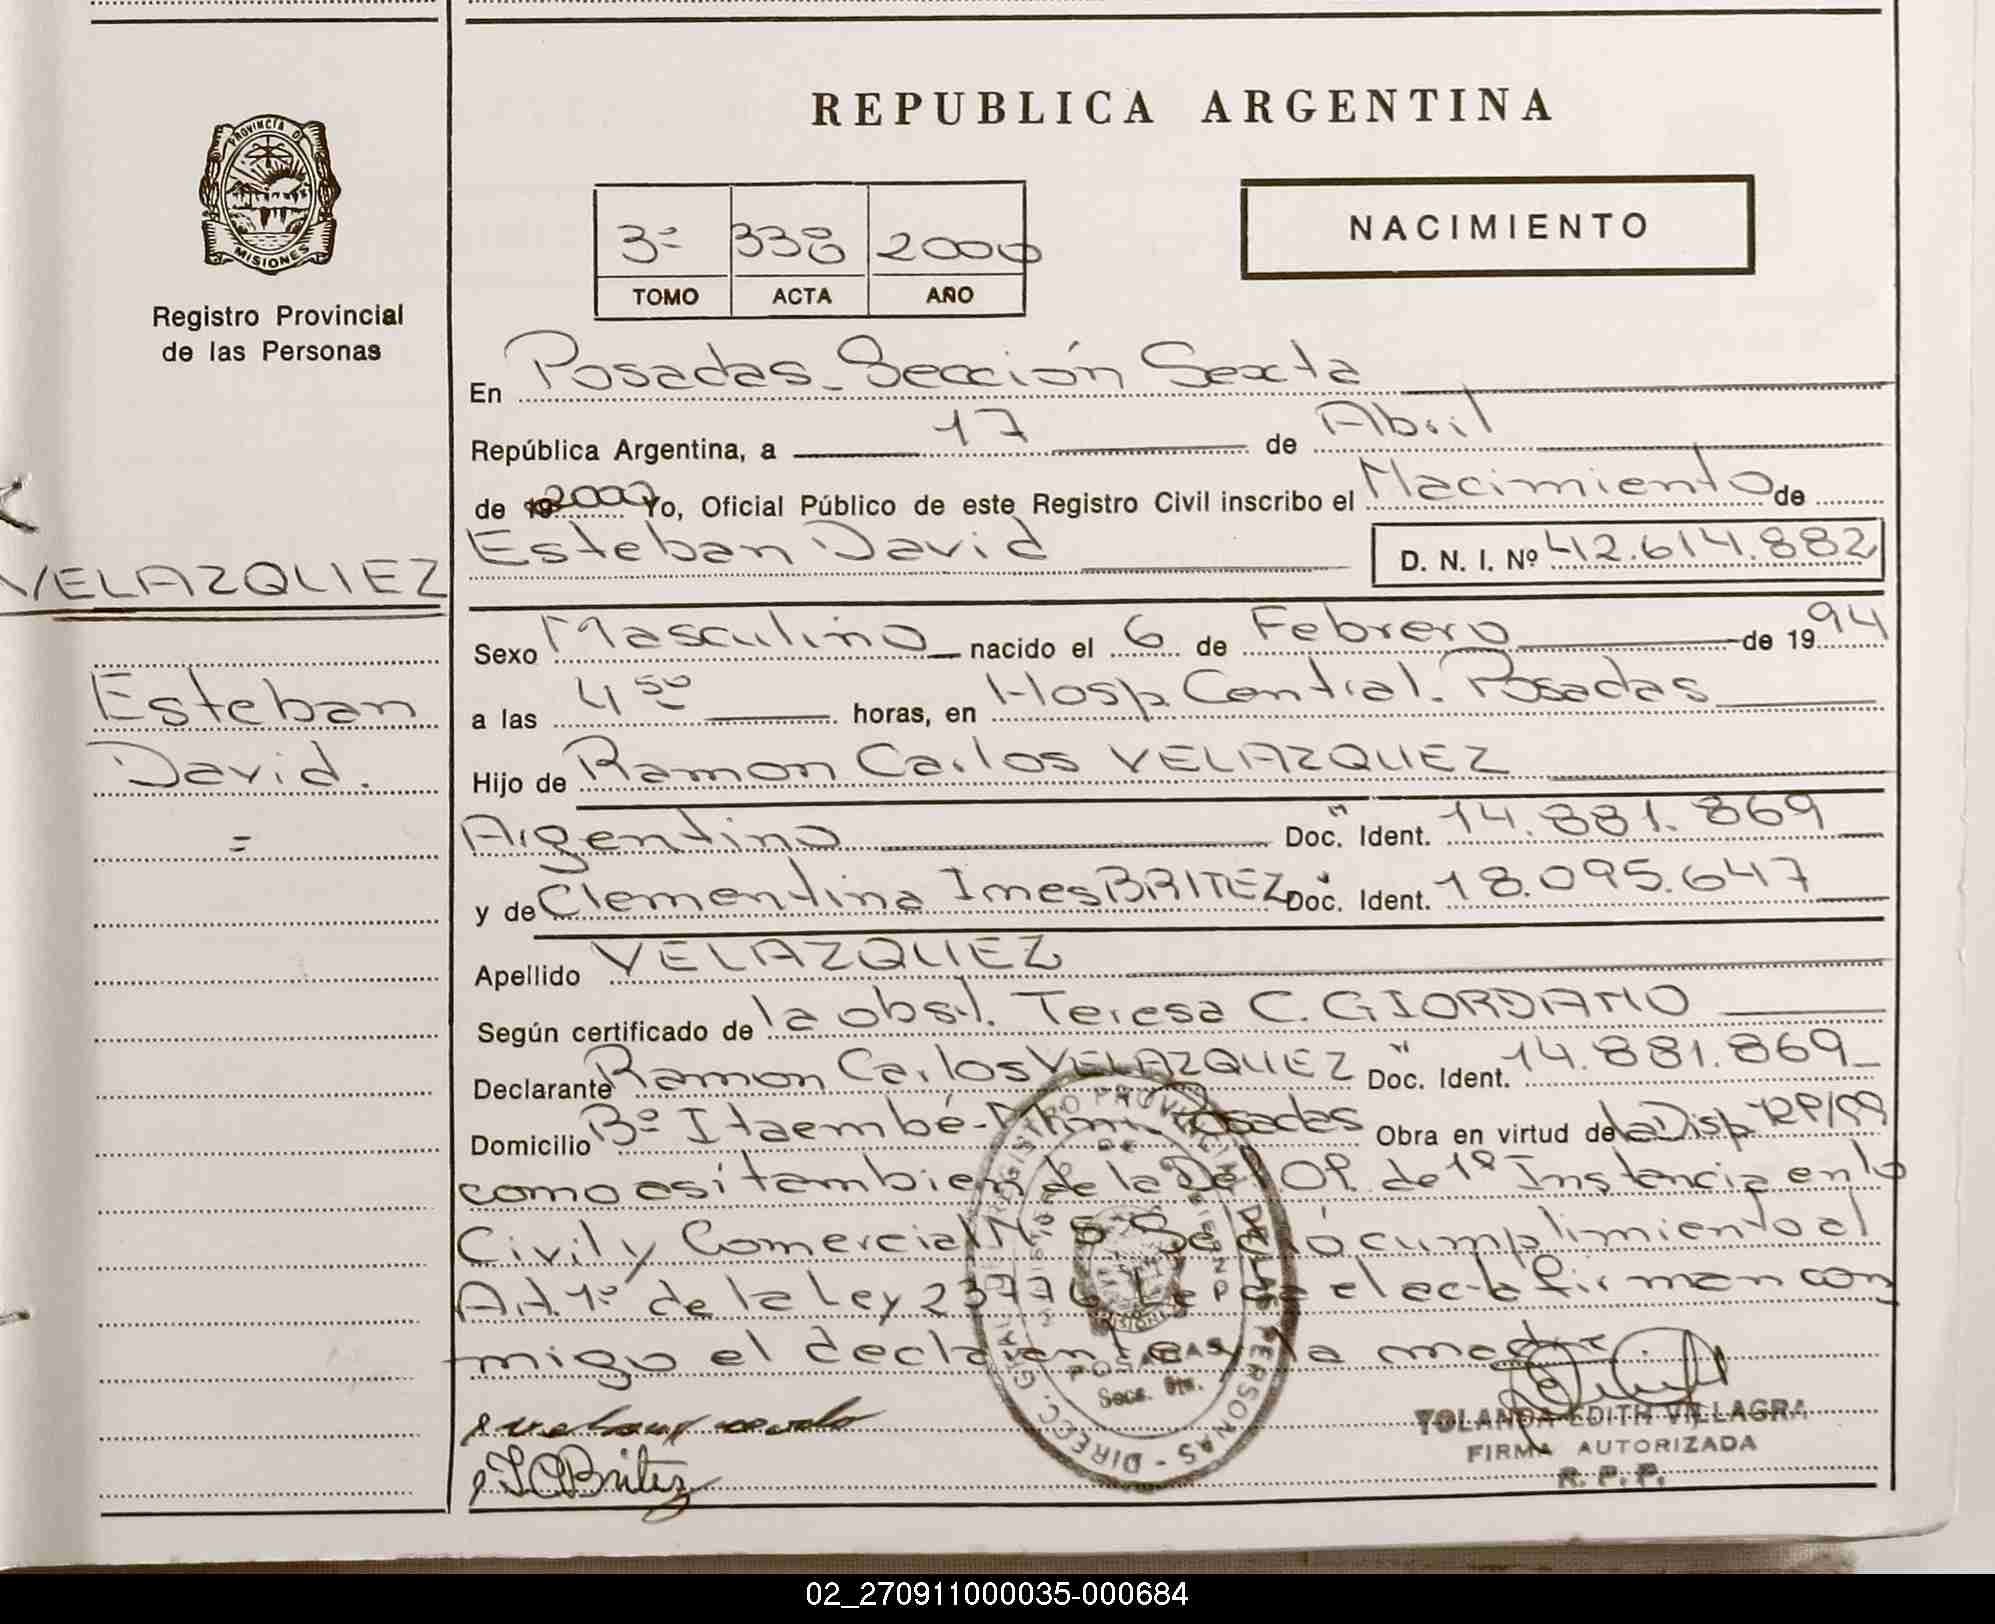 REPUBLICA ARGENTINA
PROVINCIA D MISIONES
Registro Provincial
de las Personas
3º 338 2000
TOMO ACTA AÑO
NACIMIENTO
En Posadas - Sección Sexta
República Argentina, a 17 de Abril
de 2000 Yo, Oficial Público de este Registro Civil inscribo el Nacimiento de
VELAZQUEZ
Esteban David
Esteban David D. N. I. Nº 42.614.882
Sexo Masculino nacido el 6 de Febrero de 1994
a las 4 50 horas, en Hosp. Central. Posadas
Hijo de Ramon Carlos VELAZQUEZ
Argentino Doc. Ident. 14.881.869
y de Clementina Ines BRITEZ Doc. Ident. 18.095.647
Apellido VELAZQUEZ
Según certificado de la obst. Teresa C. GIORDANO
Declarante Ramon Carlos VELAZQUEZ Doc. Ident. 14.881.869
Domicilio Bº Itaembé-Mini Posadas Obra en virtud de la Disp
como asi tambien de la de 1º Instancia en lo
Civil y Comercial Nº 5 Se dió cumplimiento al
Art. 1º de la Ley 23776 Leida el acta firman con
migo el declarante y la madre
DIRECC. GRAL. REGISTRO PROVINCIAL DE LAS PERSONAS
MISIONES
POSADAS
Secc. 6ta.
Britez
YOLANDA EDITH VILLAGRA
FIRMA AUTORIZADA
R. P. P.
02_270911000035-000684